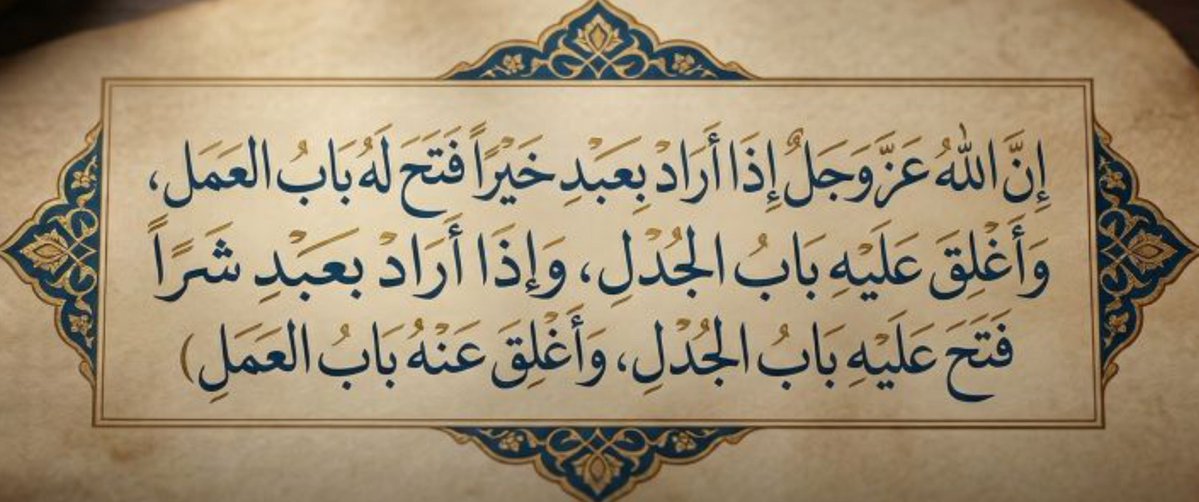 إِنَّ اللهُ عَزَّوَجَلٌ إِذَا أَرَادْ بِعَبْدِ خَيْراً فَتَحَ لَهُ بَابُ العَمَل،
وَأَغْلِقَ عَلَيْهِ بَابُ الجُدْلِ، وَإِذَا أَرَادْ بعَبْدِ شَرًا
فَتَحَ عَلَيْهِ بَابُ الجُدْلِ، وَأَغْلِقَ عَنْهُ بَابُ العَمَلِ)